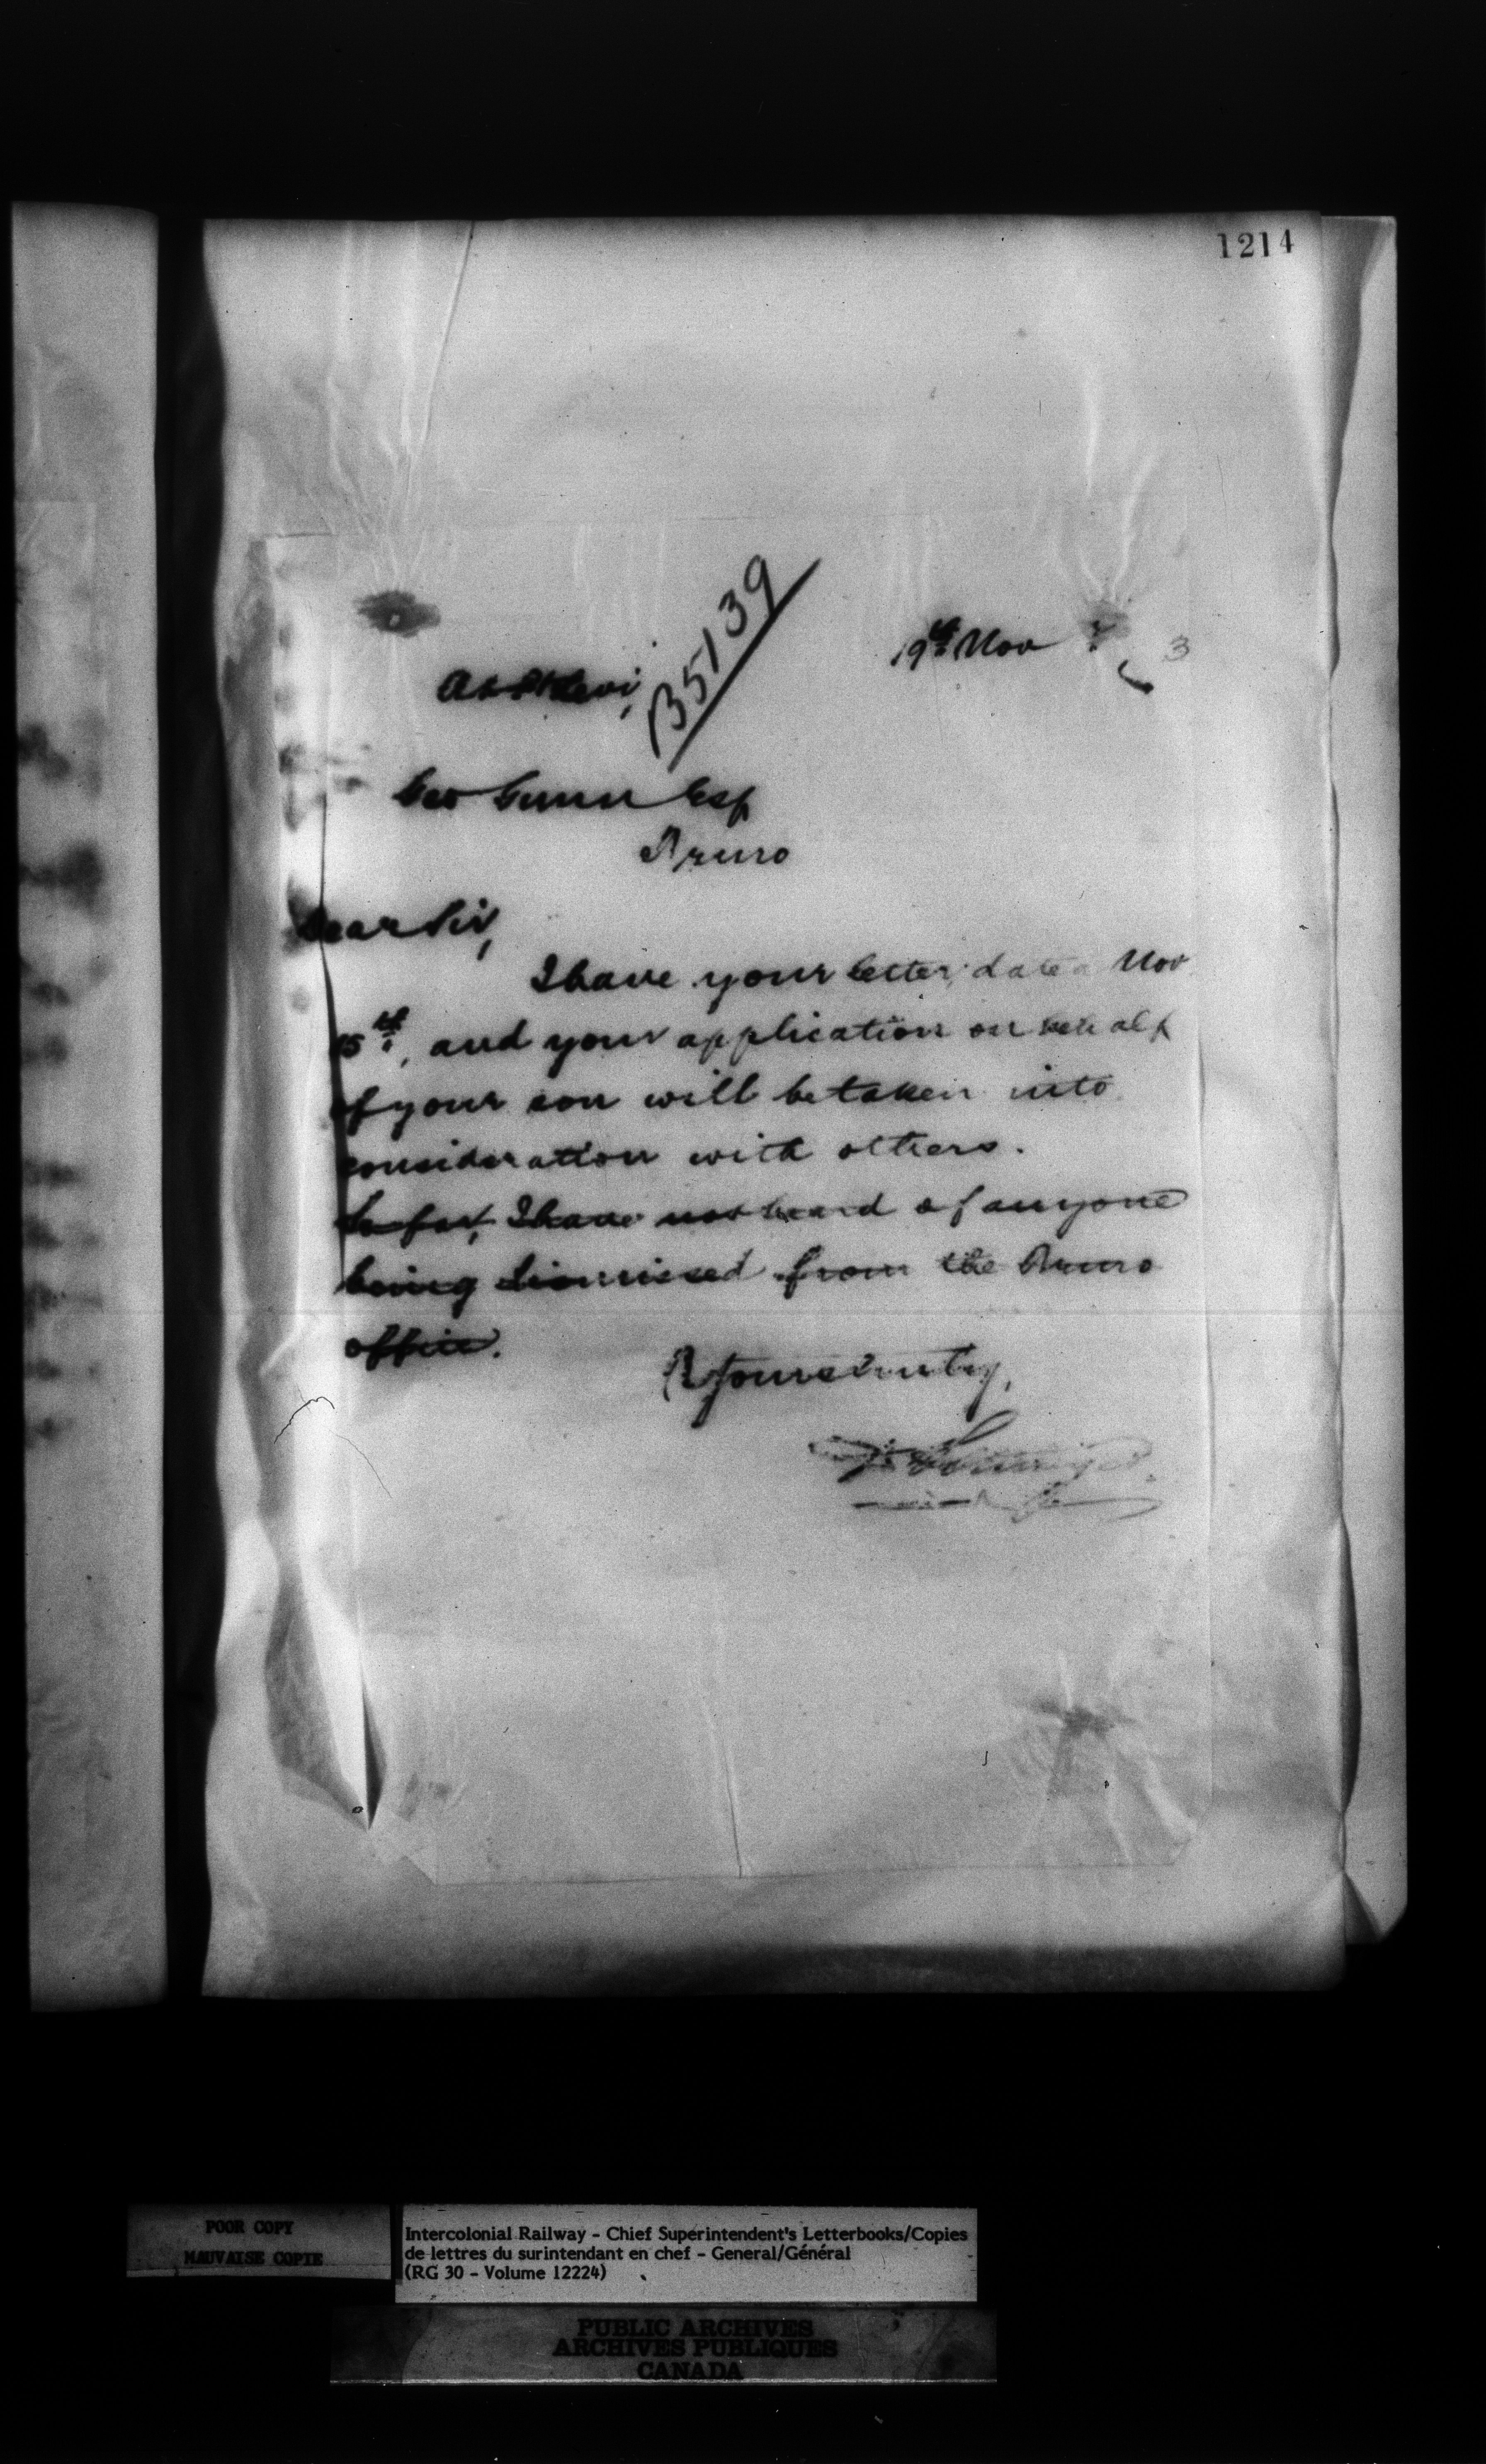 1214
19th Nov 3
35139
Geo Gunn Esq
Truro
Dear Sir,
I have your letter dated Nov
15th, and your application on behalf
of your son will be taken into
consideration with others.
So far, I have not heard of anyone
being dismissed from the Truro
office.
Yours truly,
D. Pottinger
POOR COPY
MAUVAISE COPIE
Intercolonial Railway - Chief Superintendent's Letterbooks/Copies
de lettres du surintendant en chef - General/Général
(RG 30 - Volume 12224)
PUBLIC ARCHIVES
ARCHIVES PUBLIQUES
CANADA